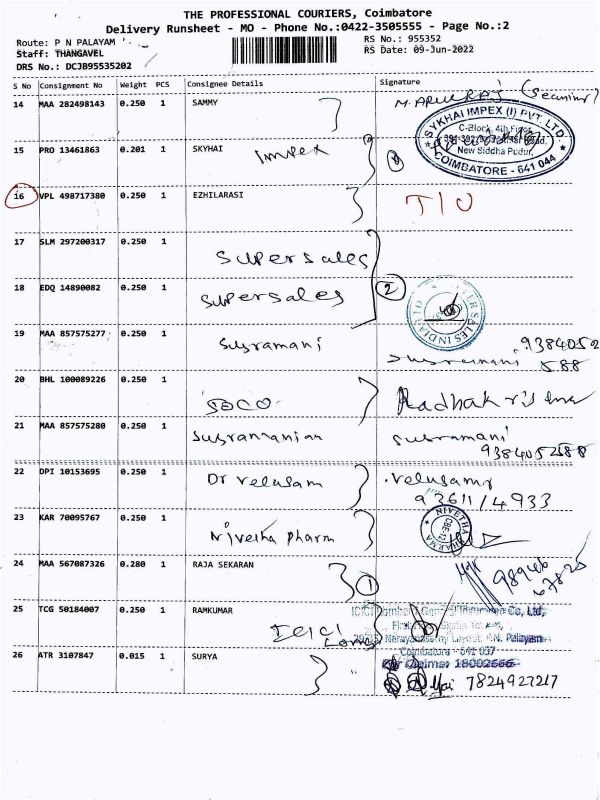 THE PROFESSIONAL COURIERS, Coimbatore
Delivery Runsheet - MO - Phone No.:0422-3505555 - Page No.:2
Route: P N PALAYAM
RS No.: 955352
Staff: THANGAVEL
RS Date: 09-Jun-2022
DRS No.: DCJB95535202
S No Consignment No Weight PCS Consignee Details Signature
14 MAA 282498143 0.250 1 SAMMY
SYKHAI IMPEX (I) PVT. LTD.
C-Block, 4th Floor,
New Siddha Pudur,
COIMBATORE - 641 044
15 PRO 13461863 0.201 1 SKYHAI Impex
16 VPL 498717380 0.250 1 EZHILARASI T/O
17 SLM 297200317 0.250 1 supersales
18 EDQ 14890082 0.250 1 supersales 2
19 MAA 857575277 0.250 1 Susramani 9384052
588
20 BHL 100089226 0.250 1 Radhakrishna
21 MAA 857575280 0.250 1 Susramanian susramani
9384052588
22 DPI 10153695 0.250 1 Dr velusam velusamy
23 KAR 70095767 0.250 1 Nivetha pharm
NIVETHA PHARMA CBE-12
24 MAA 567087326 0.280 1 RAJA SEKARAN 1
25 TCG 50184007 0.250 1 RAMKUMAR ICICI Lom
Coimbatore - 641 037
26 ATR 3107847 0.015 1 SURYA
7824927217